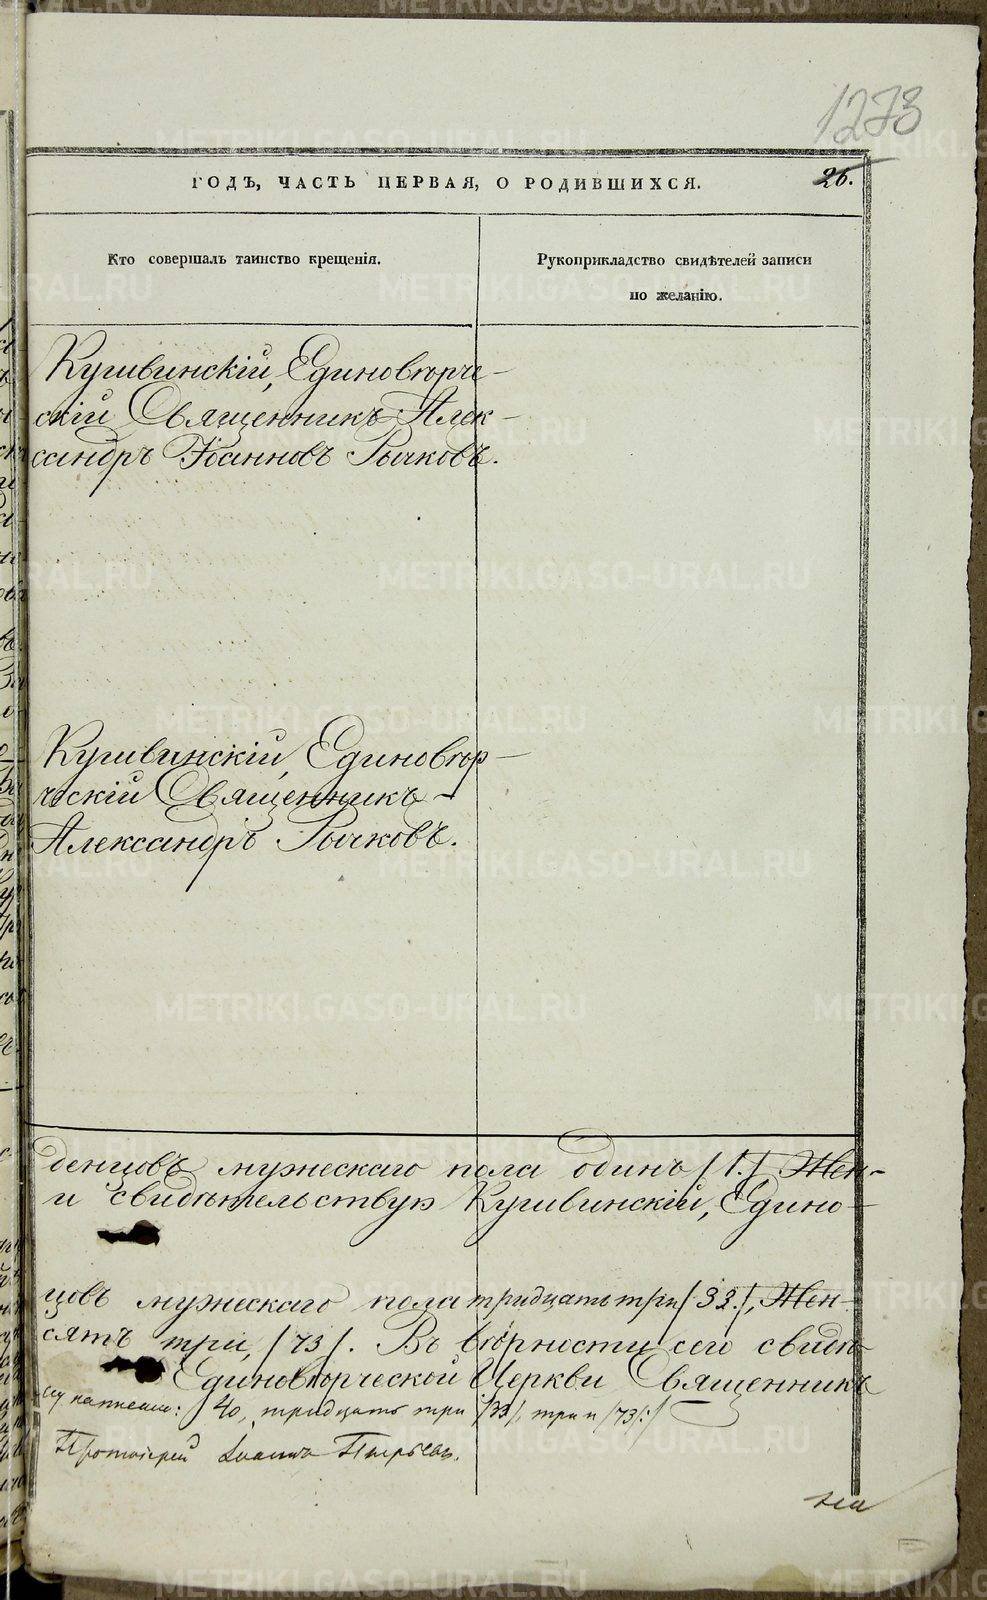 1273
ГОДЪ, ЧАСТЬ ПЕРВАЯ, О РОДИВШИХСЯ.
26.
Кто совершалъ таинство крещенія.
Рукоприкладство свидѣтелей записи
по желанію.
Кушвинскій, Единовѣрче-
скій Священникъ Алек-
сандръ Іоанновъ Рычковъ.
Кушвинскій, Единовѣр-
ческій Священникъ
Александръ Рычковъ.
денцовъ мужескаго пола одинъ /1./ Жен-
и свидѣтельствую Кушвинскій, Едино-
цовъ мужескаго пола тридцать три /33./, Жен-
сятъ три, /73/. Въ вѣрности сего свидѣ-
Единовѣрческой Церкви Священникъ
40, тридцать три /33/, три /73/
Протоіерей Іоаннъ
METRIKI.GASO-URAL.RU